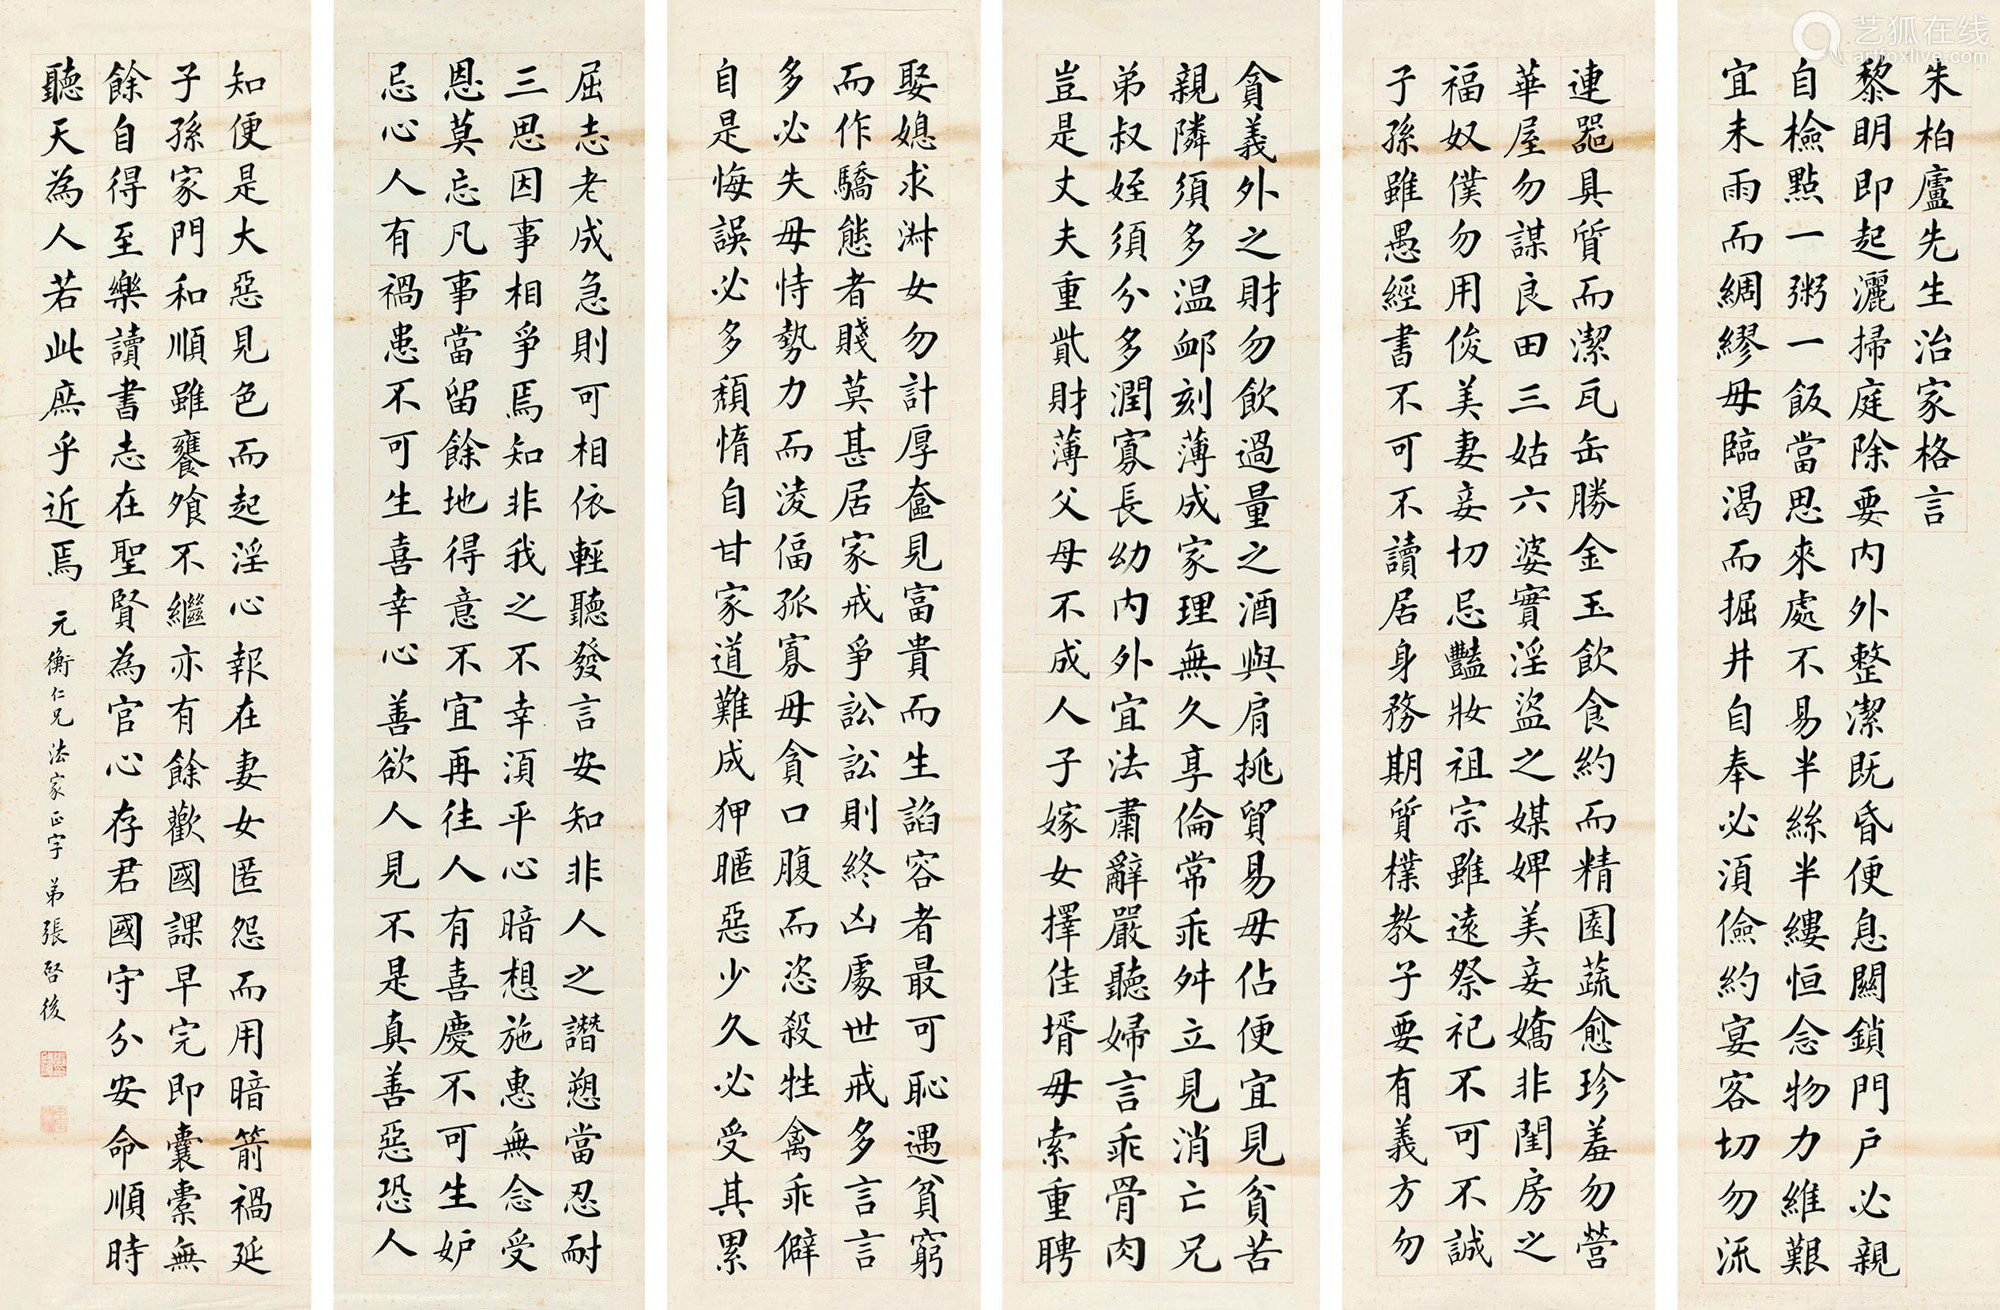 朱柏廬先生治家格言
黎明即起灑掃庭除要內外整潔既昏便息關鎖門戶必親
自檢點一粥一飯當思來處不易半絲半縷恒念物力維艱
宜未雨而綢繆毋臨渴而掘井自奉必須儉約宴客切勿流
連器具質而潔瓦缶勝金玉飲食約而精園蔬愈珍羞勿營
華屋勿謀良田三姑六婆實淫盜之媒婢美妾嬌非閨房之
福奴僕勿用俊美妻妾切忌豔妝祖宗雖遠祭祀不可不誠
子孫雖愚經書不可不讀居身務期質樸教子要有義方勿
貪義外之財勿飲過量之酒與肩挑貿易毋佔便宜見貧苦
親隣須多温卹刻薄成家理無久享倫常乖舛立見消亡兄
弟叔姪須分多潤寡長幼內外宜法肅辭嚴聽婦言乖骨肉
豈是丈夫重貲財薄父母不成人子嫁女擇佳壻毋索重聘
娶媳求淋女勿計厚奩見富貴而生諂容者最可恥遇貧窮
而作驕態者賤莫甚居家戒爭訟訟則終凶處世戒多言言
多必失毋恃勢力而淩偪孤寡毋貪口腹而恣殺牲禽乖僻
自是悔誤必多頹惰自甘家道難成狎暱惡少久必受其累
屈志老成急則可相依輕聽發言安知非人之譖愬當忍耐
三思因事相爭焉知非我之不幸須平心暗想施惠無念受
恩莫忘凡事當留餘地得意不宜再往人有喜慶不可生妒
忌心人有禍患不可生喜幸心善欲人見不是真善惡恐人
知便是大惡見色而起淫心報在妻女匿怨而用暗箭禍延
子孫家門和順雖饔飧不繼亦有餘歡國課早完即囊橐無
餘自得至樂讀書志在聖賢為官心存君國守分安命順時
聽天為人若此庶乎近焉
元衡仁兄法家正字 弟張啓後
艺狐在线
artfoxlive.com